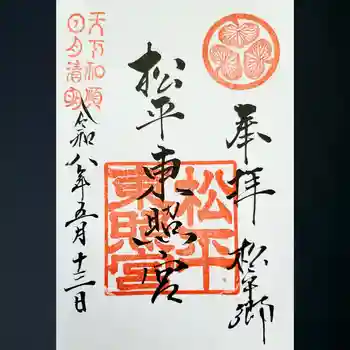 奉拝 松平郷
松平東照宮
松平
東照宮
令和八年五月十二日
天下和順
日月清明